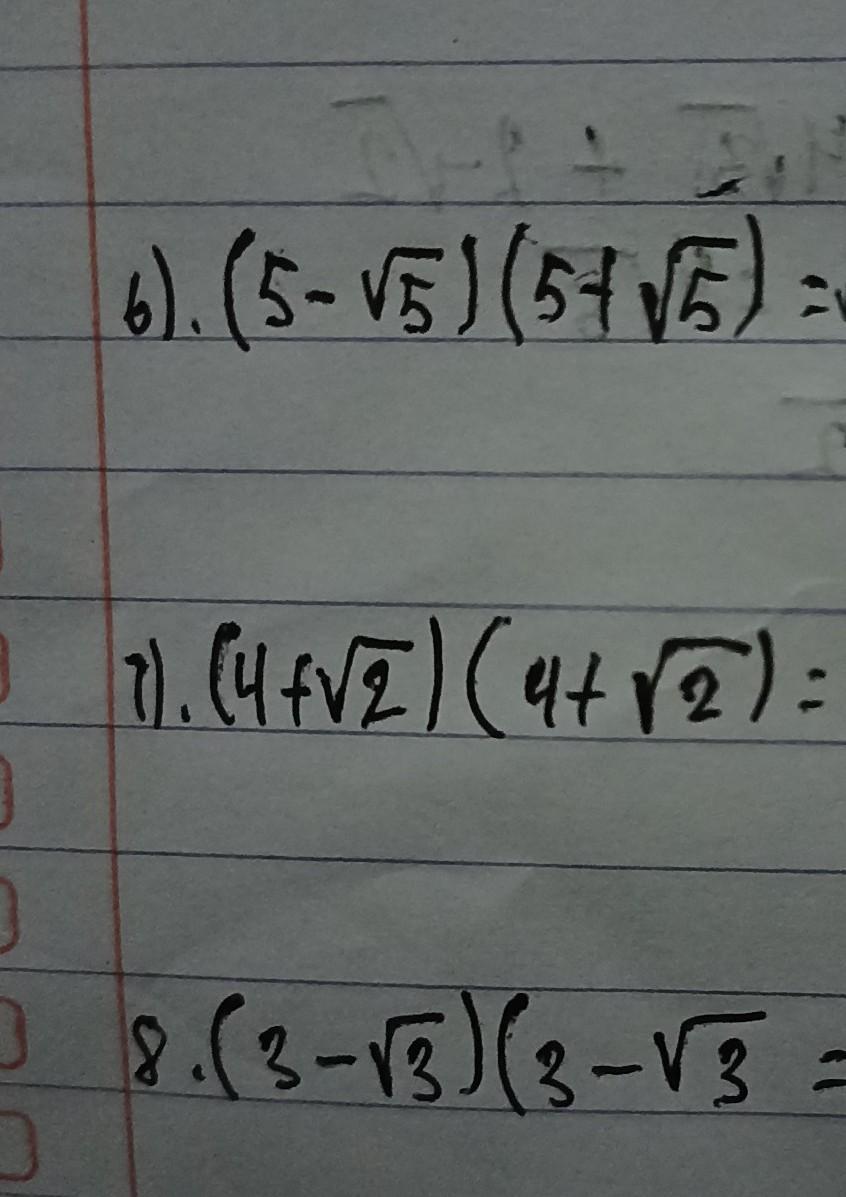 6). (5-√5)(5+√5) =
7). (4+√2)(4+√2) =
8. (3-√3)(3-√3 =